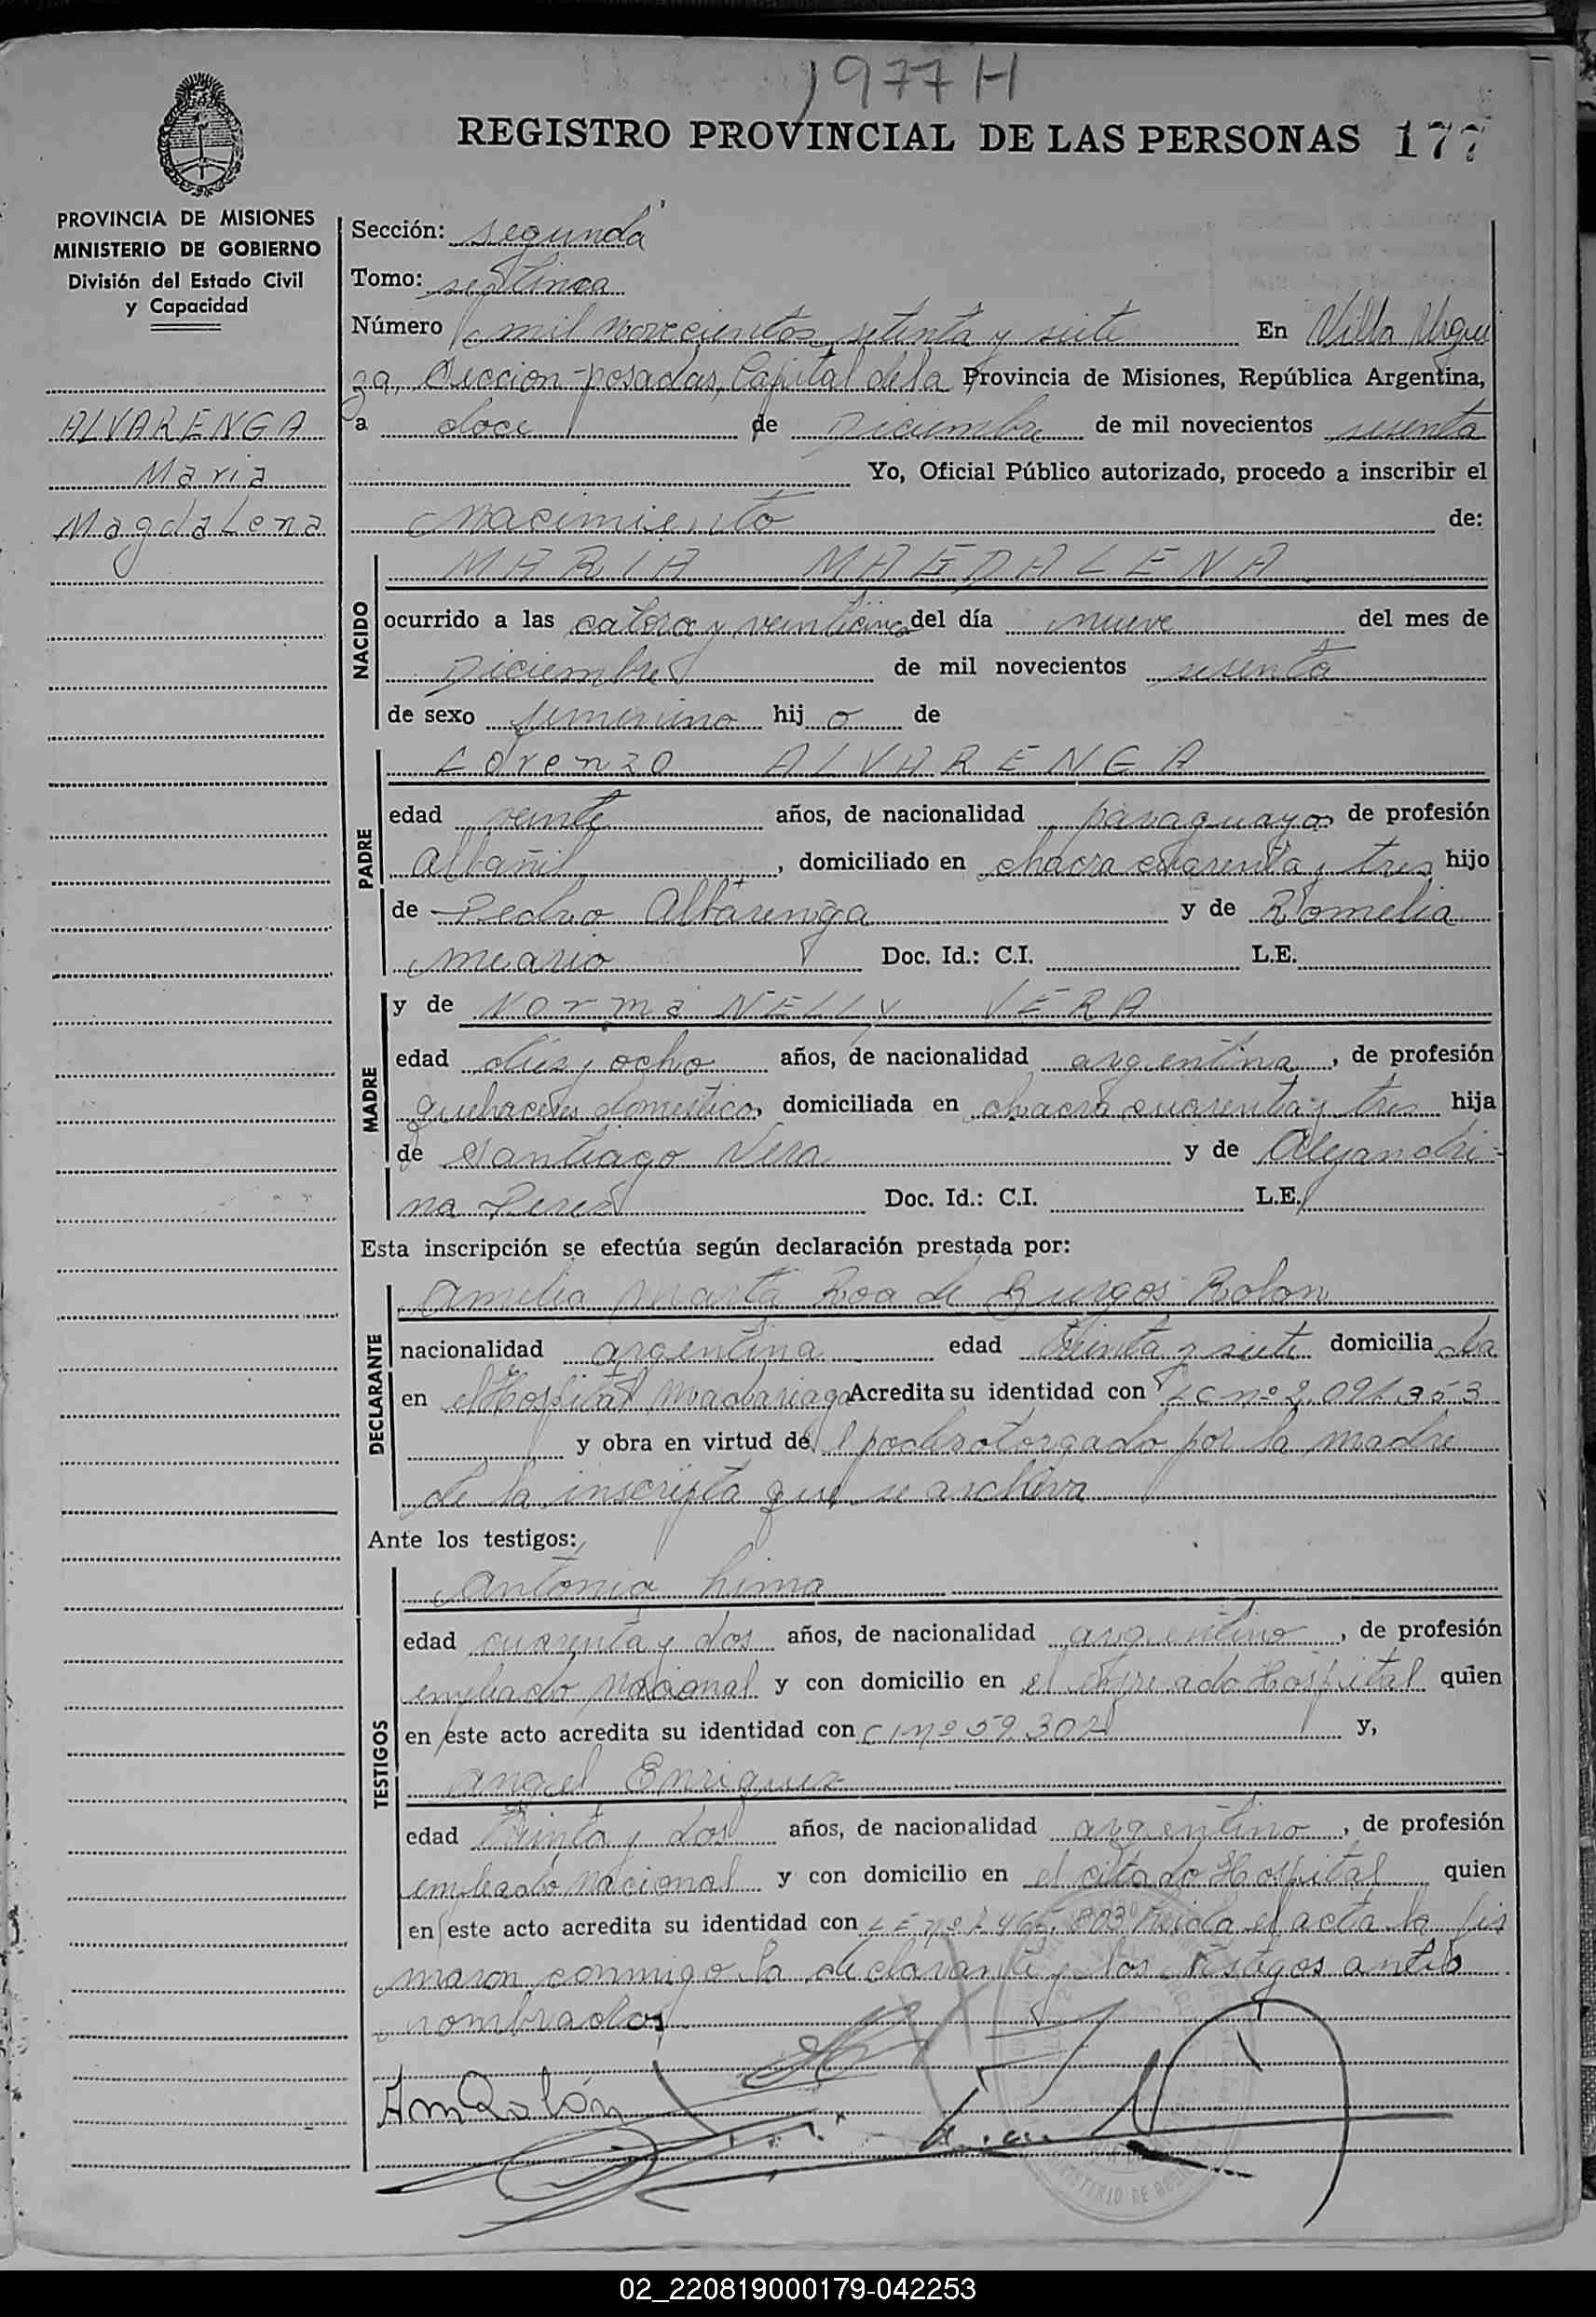 1977 H
REGISTRO PROVINCIAL DE LAS PERSONAS 177
PROVINCIA DE MISIONES
MINISTERIO DE GOBIERNO
División del Estado Civil
y Capacidad
ALVARENGA
Maria
Magdalena
Sección: segunda
Tomo: septimoa
Número mil novecientos setenta y siete En Villa Urqui
za, Seccion posadas, Capital de la Provincia de Misiones, República Argentina,
a doce de Diciembre de mil novecientos sesenta
Yo, Oficial Público autorizado, procedo a inscribir el
nacimiento de:
NACIDO
MARIA MAGDALENA
ocurrido a las catorce y veinticinco del día nueve del mes de
Diciembre de mil novecientos sesenta
de sexo femenino hij o de
PADRE
Lorenzo ALVARENGA
edad veinte años, de nacionalidad paraguayo de profesión
Albañil, domiciliado en chacra cuarenta y tres hijo
de Pedro Albarenga y de Romelia
Doc. Id.: C.I. L.E.
MADRE
y de Norma NELLY VERA
edad diez y ocho años, de nacionalidad argentina, de profesión
quehaceres domesticos domiciliada en chacra cuarenta y tres hija
de Santiago Vera y de Alejandri-
na Perez Doc. Id.: C.I. L.E.
Esta inscripción se efectúa según declaración prestada por:
DECLARANTE
Amelia Marta Roa de Burgos Rolon
nacionalidad argentina edad treinta y siete domicilia da
en el Hospital Madariaga Acredita su identidad con LC nº 2.091.353
y obra en virtud del poder otorgado por la madre
de la inscripta que se archiva
Ante los testigos:
TESTIGOS
Antonio Lima
edad cuarenta y dos años, de nacionalidad argentino, de profesión
empleado Nacional y con domicilio en el Hospital quien
en este acto acredita su identidad con C I Nº 59.302 y,
Angel Enriquez
edad treinta y dos años, de nacionalidad argentino, de profesión
empleado nacional y con domicilio en el citado Hospital quien
en este acto acredita su identidad con L E nº leida el acta la fir
maron conmigo la declarante y los testigos antes
nombrados
AmRolón
02_220819000179-042253